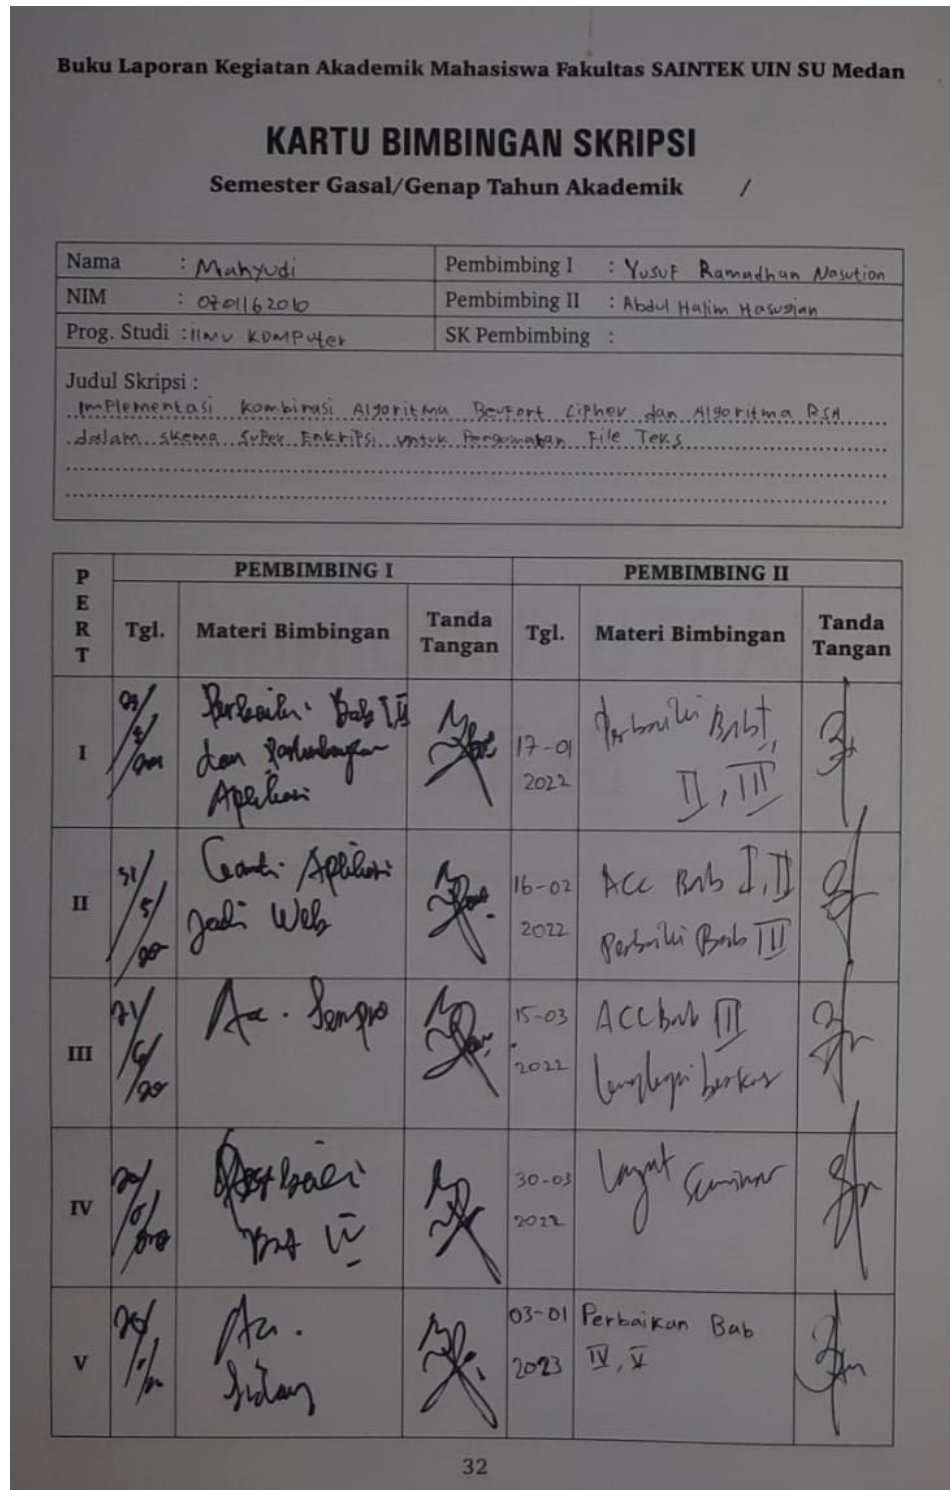 Buku Laporan Kegiatan Akademik Mahasiswa Fakultas SAINTEK UIN SU Medan
KARTU BIMBINGAN SKRIPSI
Semester Gasal/Genap Tahun Akademik /
Nama : Mahyudi
Pembimbing I : Yusuf Ramadhan Nasution
NIM : 0701162010
Pembimbing II : Abdul Halim Hasugian
Prog. Studi : Ilmu Komputer
SK Pembimbing :
Judul Skripsi :
Implementasi Kombinasi Algoritma Beufort Cipher dan Algoritma RSA
dalam skema Super Enkripsi untuk Pengamatan File Teks
PERT
PEMBIMBING I
PEMBIMBING II
Tgl.
Materi Bimbingan
Tanda Tangan
Tgl.
Materi Bimbingan
Tanda Tangan
I
Perbaiki Bab I, II
dan
Aplikasi
17-01
2022
Perbaiki Bab I,
II, III
II
31/5/
Ganti Aplikasi
jadi Web
16-02
2022
ACC Bab I, II
Perbaiki Bab III
III
Acc. Sempro
15-03
2022
ACC Bab III
lengkapi berkas
IV
Perbaiki
Bab IV
30-03
2022
Lanjut Seminar
V
Acc.
Sidang
03-01
2023
Perbaikan Bab
IV, V
32